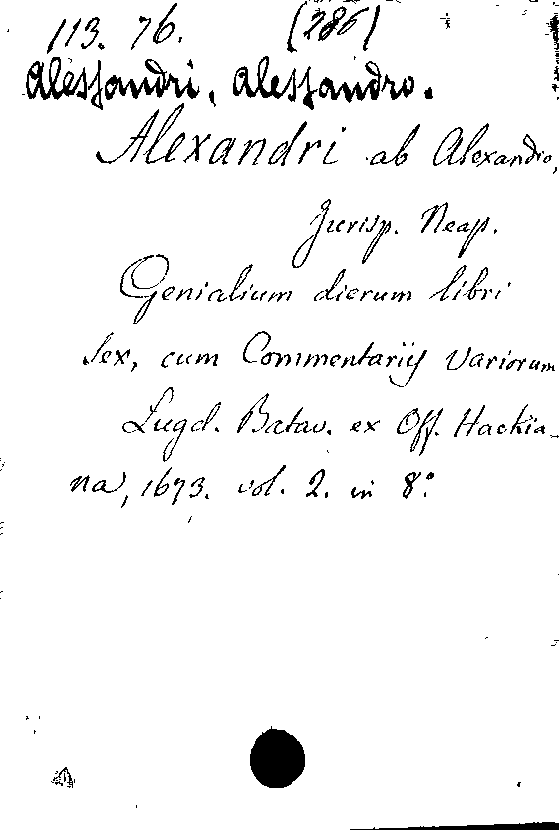 113. 76. (286)
Alessandri, Alessandro.
Alexandri ab Alexandro,
Jurisp. Neap.
Genialium dierum libri
sex, cum Commentariis variorum
Lugd. Batav. ex Off. Hackia-
na, 1673. vol. 2. in 8.º